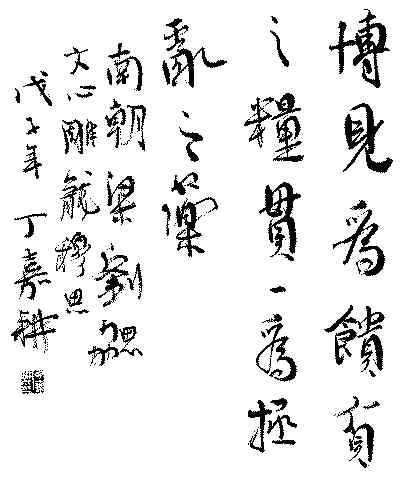 博見為饋貧
之糧貫一為拯
亂之藥
南朝梁劉勰
文心雕龍神思
戊子年 丁嘉耕